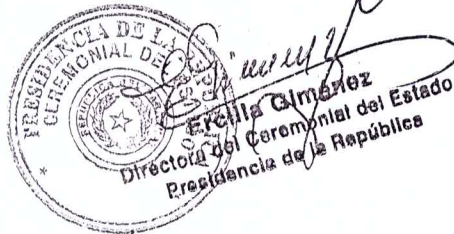 PRESIDENCIA DE LA
CEREMONIAL DEL
REPUBLICA DEL
Ercilia Giménez
Directora del Ceremonial del Estado
Presidencia de la República